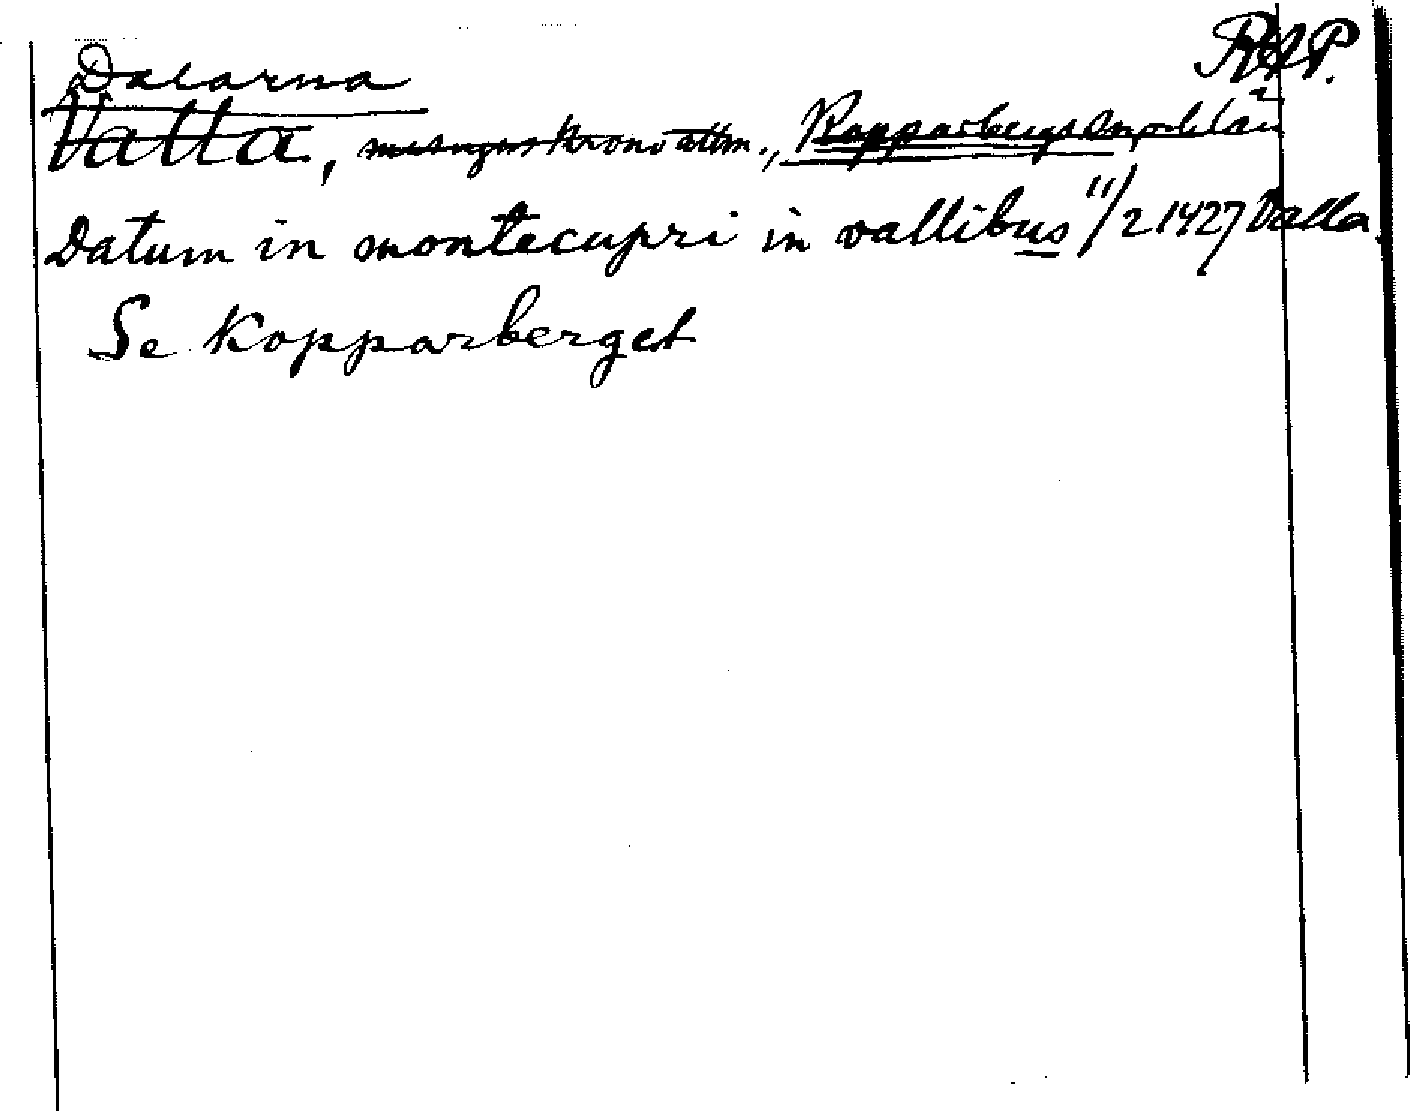 Dalarna RAP.
Valla, Kopparbergs län
Datum in montecupri in vallibus 11/2 1427 Valla.
Se Kopparberget